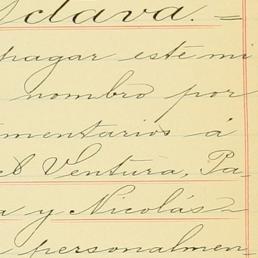 Octava. =
pagar este mi
nombro por
mentarios á
Ventura, Pa-
a y Nicolás
personalmen-